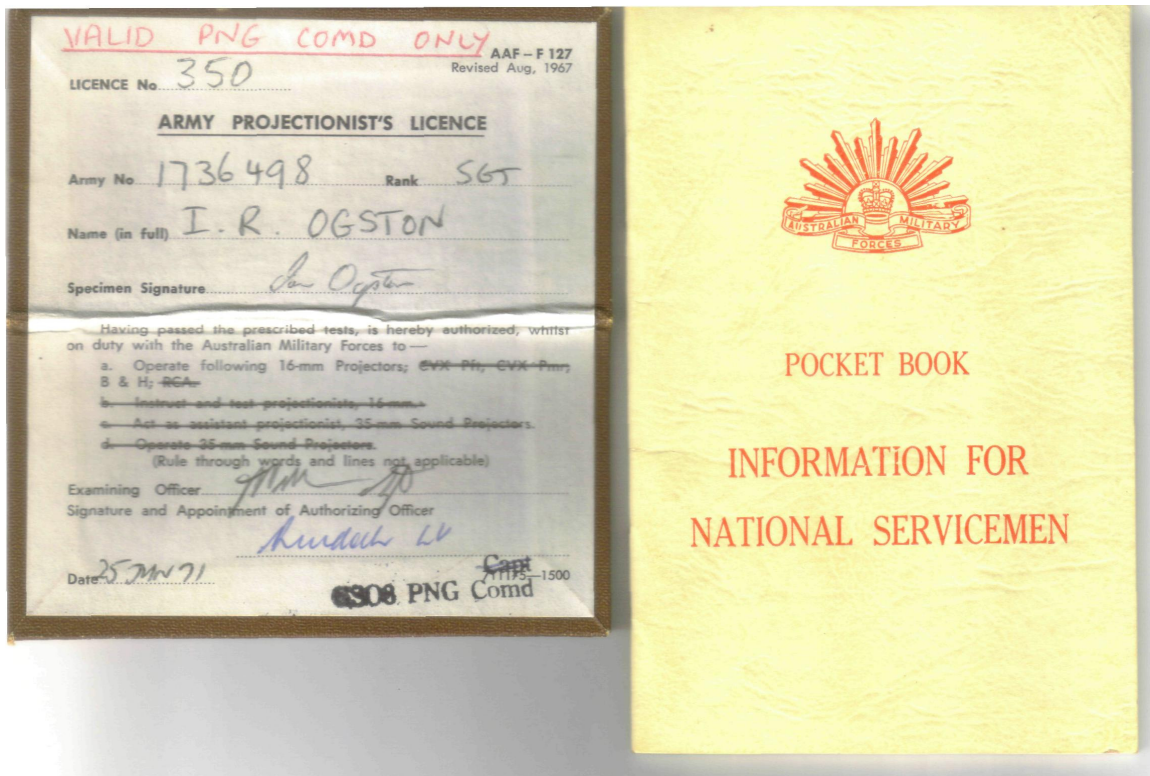 VALID PNG COMD ONLY
AAF – F 127
Revised Aug, 1967
LICENCE No 350
ARMY PROJECTIONIST'S LICENCE
Army No 1736498 Rank SGT
Name (in full) I. R. OGSTON
Specimen Signature Ian Ogston
Having passed the prescribed tests, is hereby authorized, whilst
on duty with the Australian Military Forces to—
a. Operate following 16-mm Projectors; CVX Pft, CVX Pmr;
B & H; RCA.
b. Instruct and test projectionists, 16-mm.
c. Act as assistant projectionist, 35-mm Sound Projectors.
d. Operate 35-mm Sound Projectors.
(Rule through words and lines not applicable)
Examining Officer
Signature and Appointment of Authorizing Officer
Date 25 JAN 71
Capt
11175—1500
PNG Comd
AUSTRALIAN MILITARY
FORCES
POCKET BOOK
INFORMATION FOR
NATIONAL SERVICEMEN